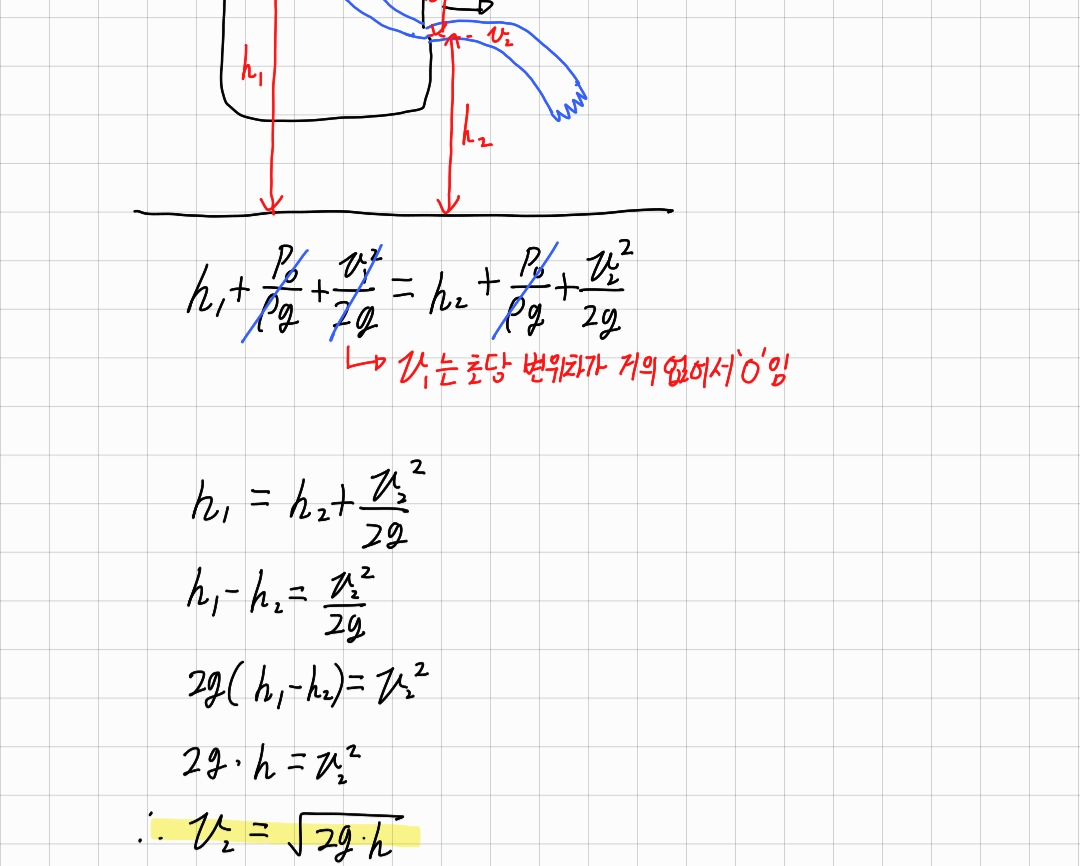 h₁
v₂
h₂
h₁ + P₀/ρg + v₁²/2g = h₂ + P₀/ρg + v₂²/2g
v₁는 초당 변위차가 거의 없어서 '0'임
h₁ = h₂ + v₂²/2g
h₁ - h₂ = v₂²/2g
2g(h₁-h₂) = v₂²
2g · h = v₂²
∴ v₂ = √2g·h